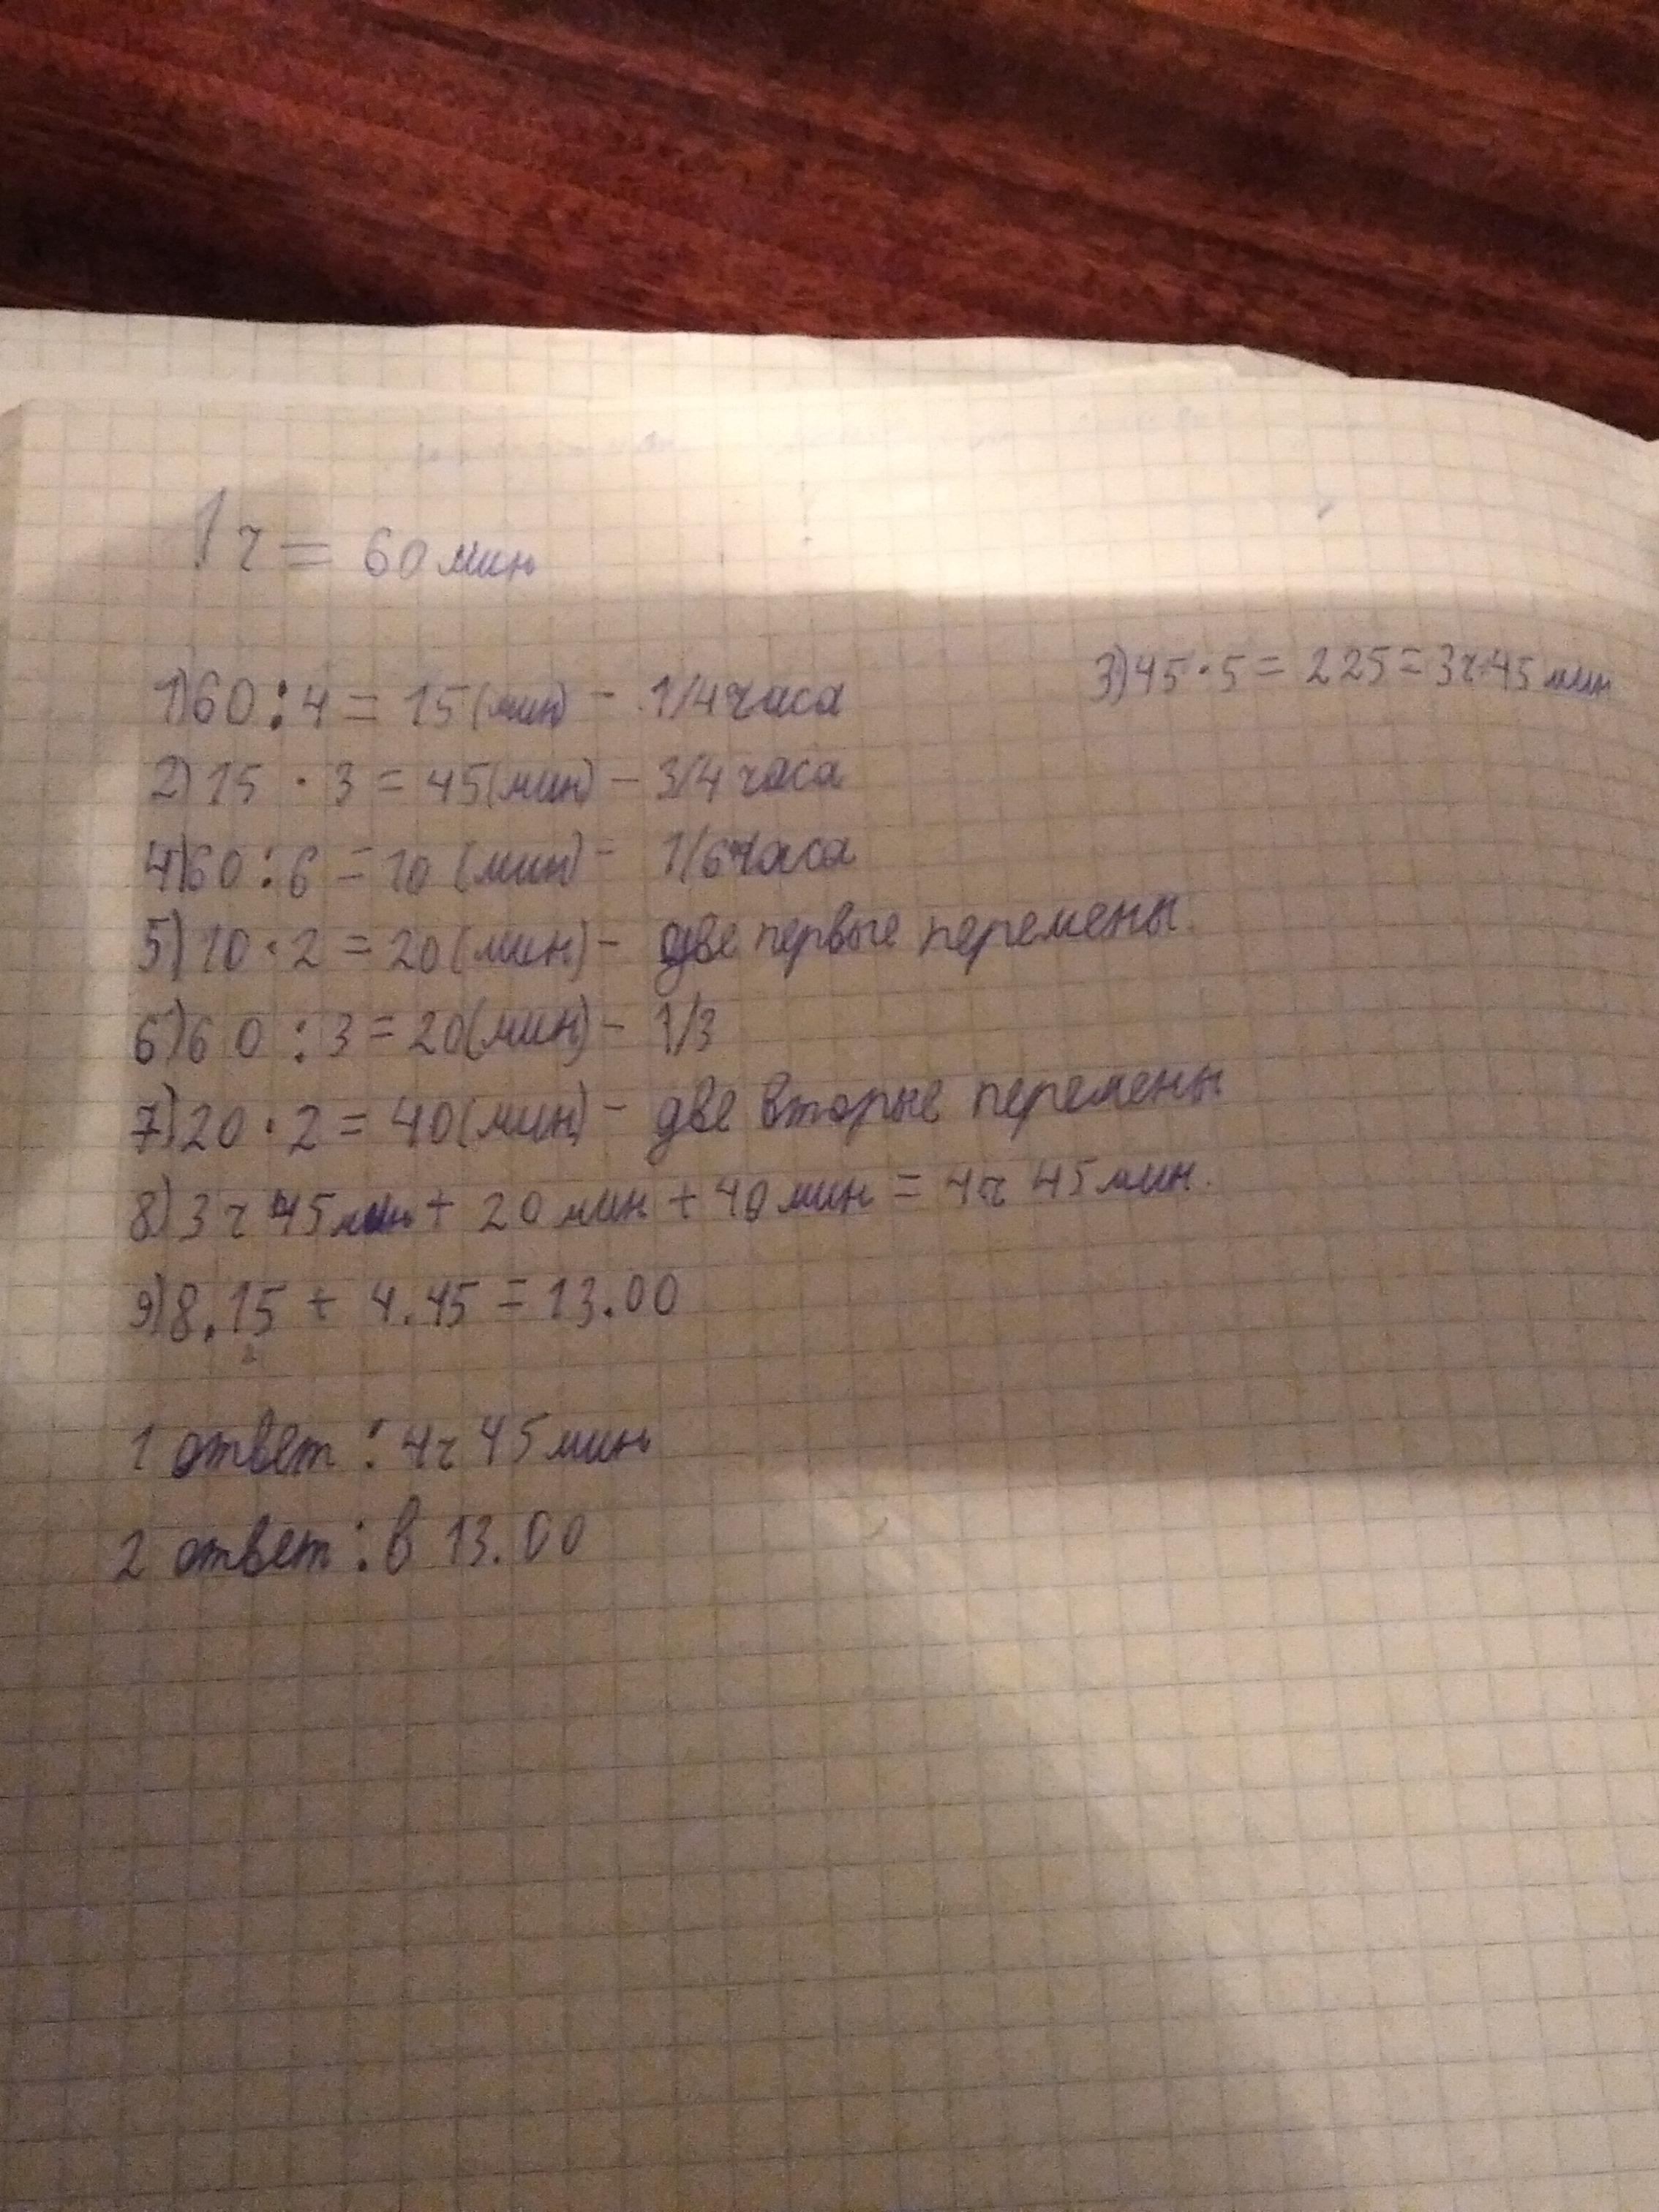 1 ч = 60 мин
1) 60 : 4 = 15 (мин) - 1/4 часа
3) 45 · 5 = 225 = 3ч 45 мин
2) 15 · 3 = 45 (мин) - 3/4 часа
4) 60 : 6 = 10 (мин) - 1/6 часа
5) 10 · 2 = 20 (мин) - две первые перемены.
6) 60 : 3 = 20 (мин) - 1/3
7) 20 · 2 = 40 (мин) - две вторые перемены.
8) 3 ч 45 мин + 20 мин + 40 мин = 4ч 45 мин.
9) 8.15 + 4.45 = 13.00
1 ответ : 4ч 45 мин
2 ответ : в 13.00